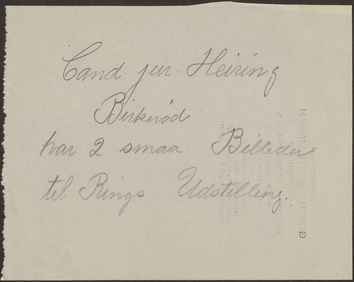 Cand jur Heiring
Birkerød
har 2 smaa Billeder
til Rings Udstilling.